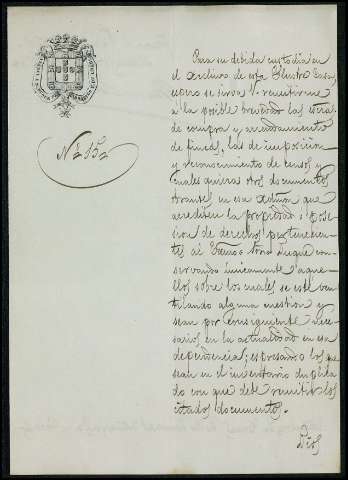 Nº 152
Para su debida custodia en
el archivo de esta Ilustre Casa,
espero se sirva remitirme
a la posible brevedad las escras
de compra y arrendamiento
de fincas, las de imposicion
y reconocimiento de censos y
cuales quiera otros documentos
obrantes en esa admon que
acrediten la propiedad ó pose-
sion de derechos pertenecien-
tes al Excmo Señor Duque con-
servando únicamente aque-
llos sobre los cuales se esté ven-
tilando alguna cuestion y
sean por consiguiente nece-
sarios en la actualidad en esa
dependencia; espresando los que
sean en el inventario duplica-
do con que debe remitir los
citados documentos.
Dios